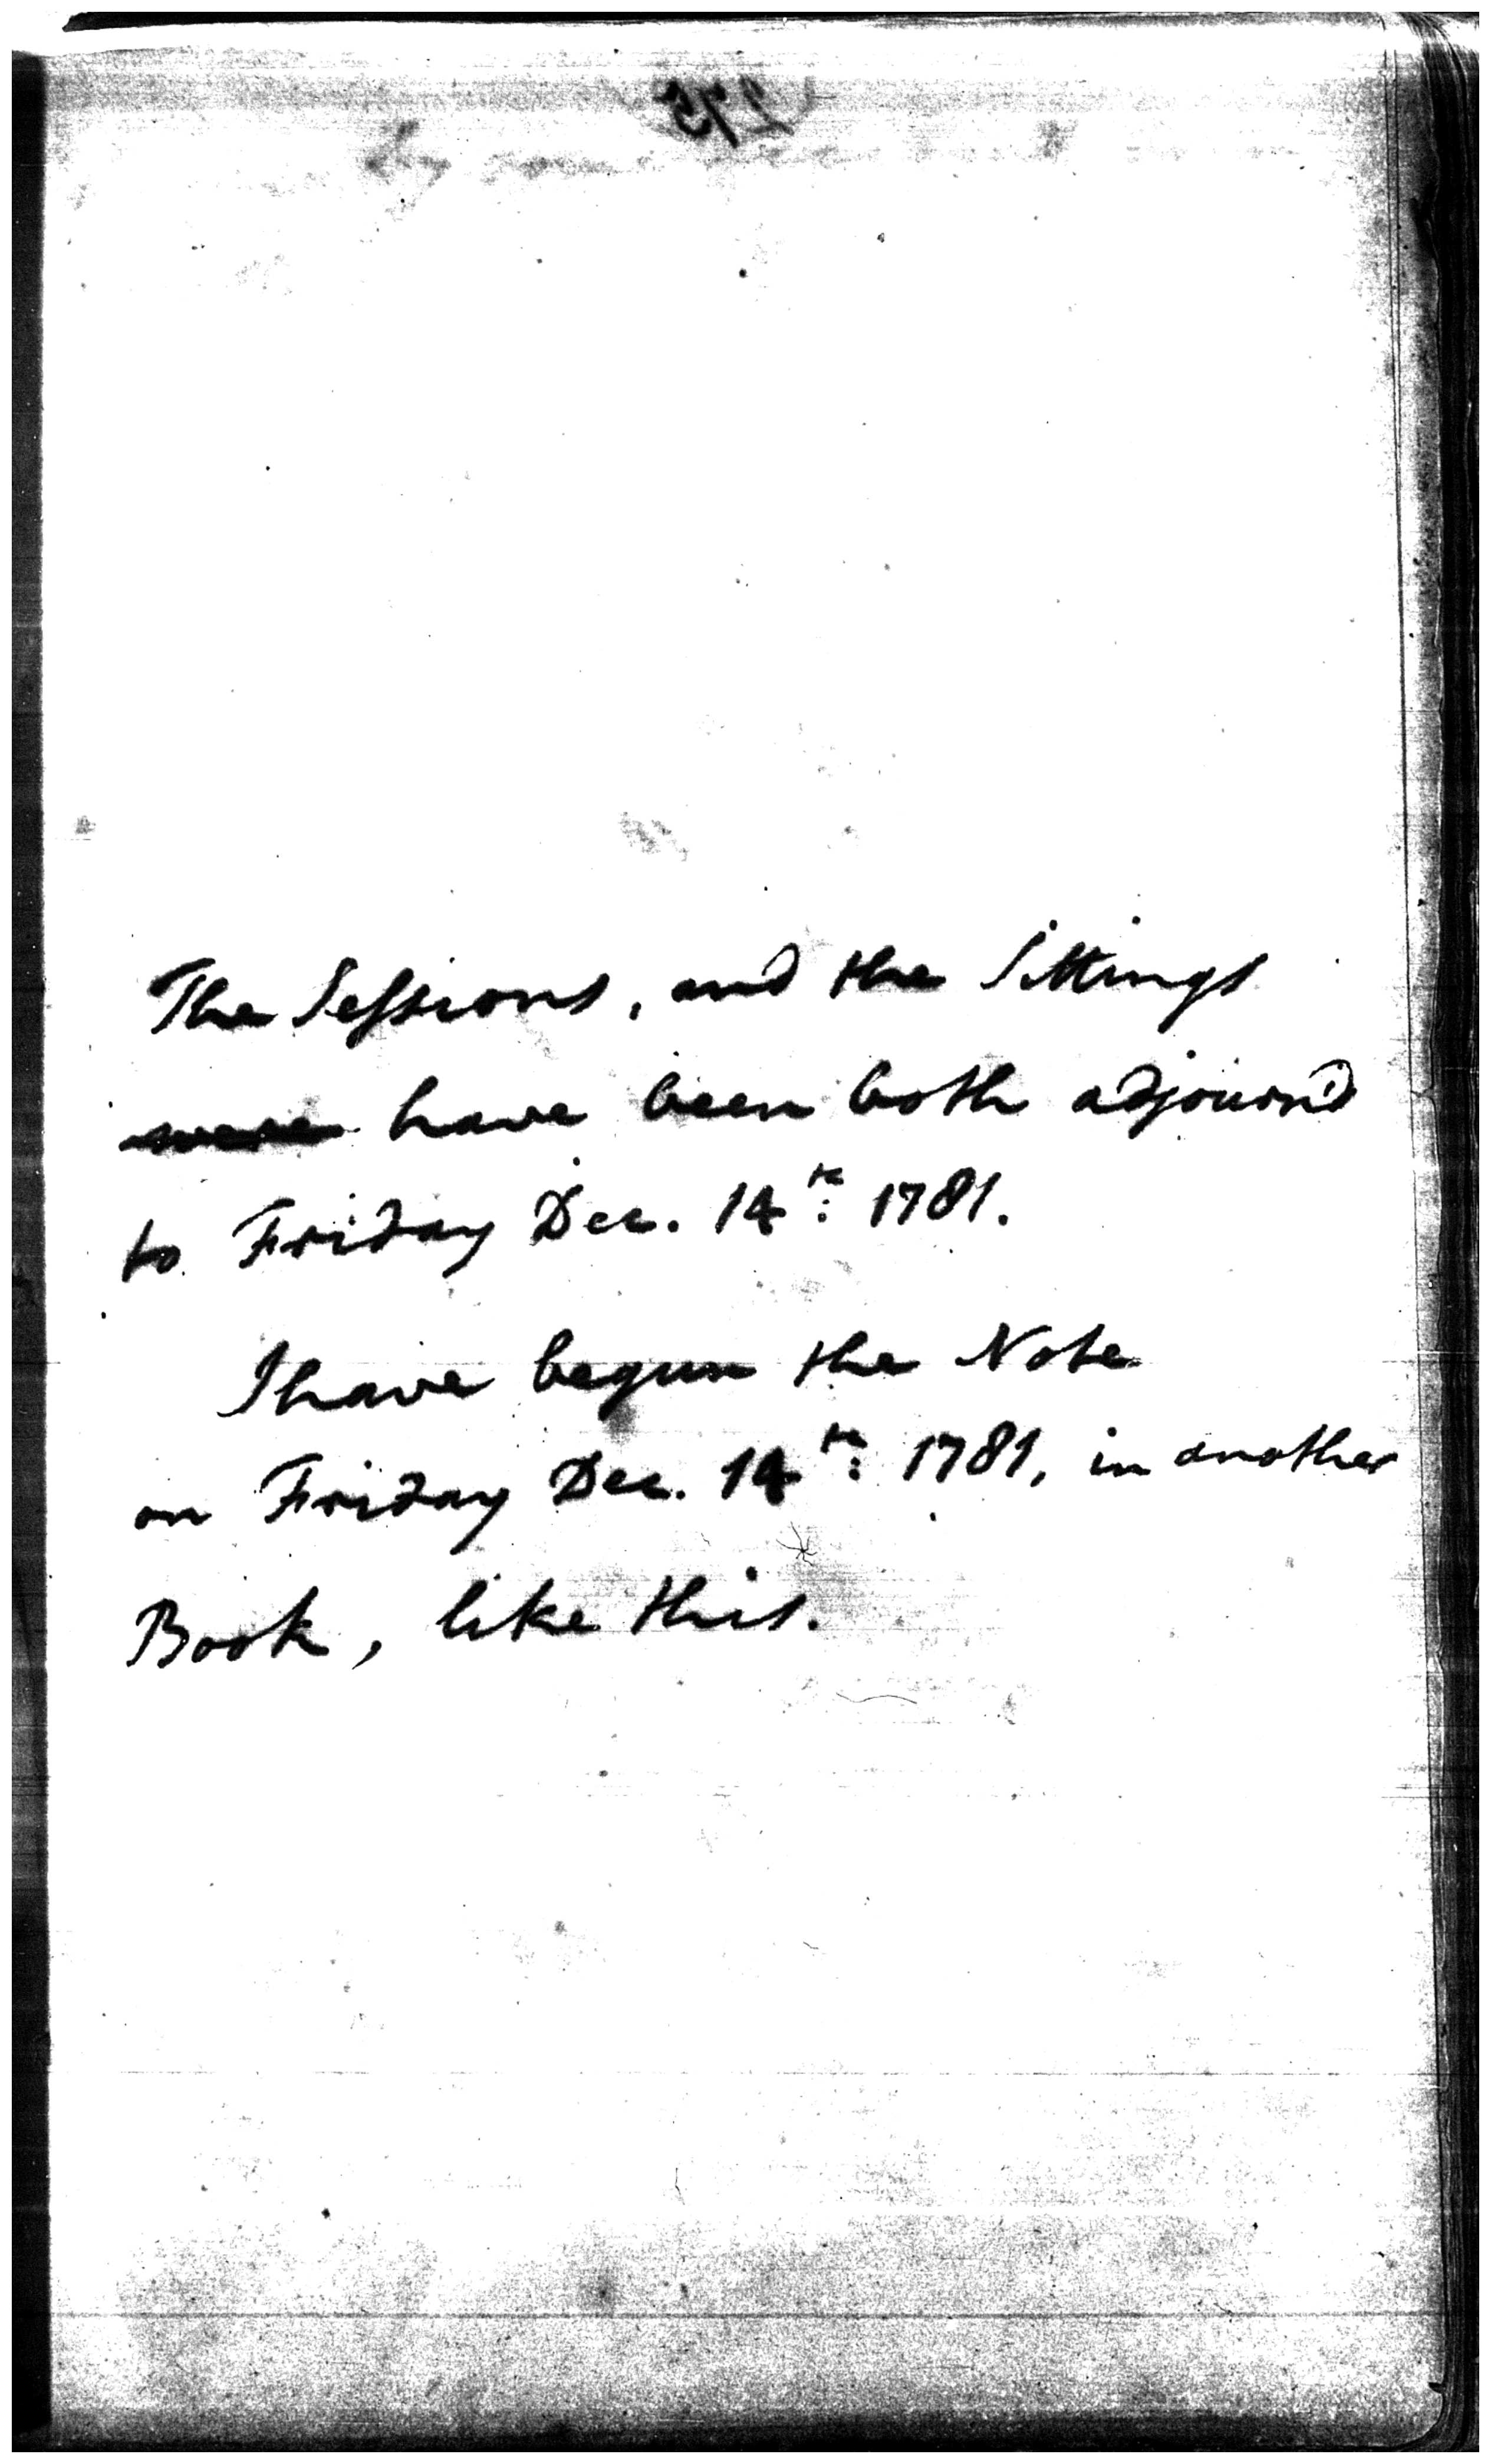 The Sessions, and the Sittings
were have been both adjourn'd
to Friday Dec. 14th: 1781.
I have begun the Note
on Friday Dec. 14th: 1781, in another
Book, like this.